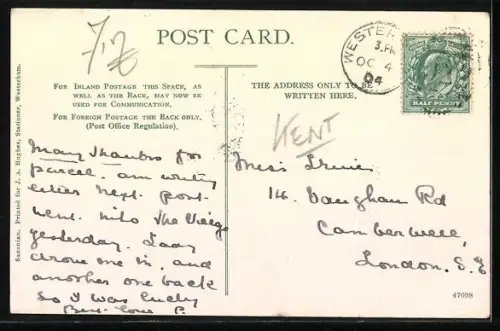 7/2
POST CARD.
FOR INLAND POSTAGE THIS SPACE, AS
WELL AS THE BACK, MAY NOW BE
USED FOR COMMUNICATION.
FOR FOREIGN POSTAGE THE BACK ONLY.
(Post Office Regulation).
Many thanks for
parcel. am writing
letter next post.
Went into the Village
yesterday. Lady
drove me in, and
another one back
so I was lucky
Best love P.
THE ADDRESS ONLY TO BE
WRITTEN HERE.
KENT
Miss
14. Vaughan Rd
Camberwell,
London. S.E
WESTER
3.PM
OC 4
04
HALF PENNY
Saxonian. Printed for J. A. Hughes, Stationer, Westerham.
47098